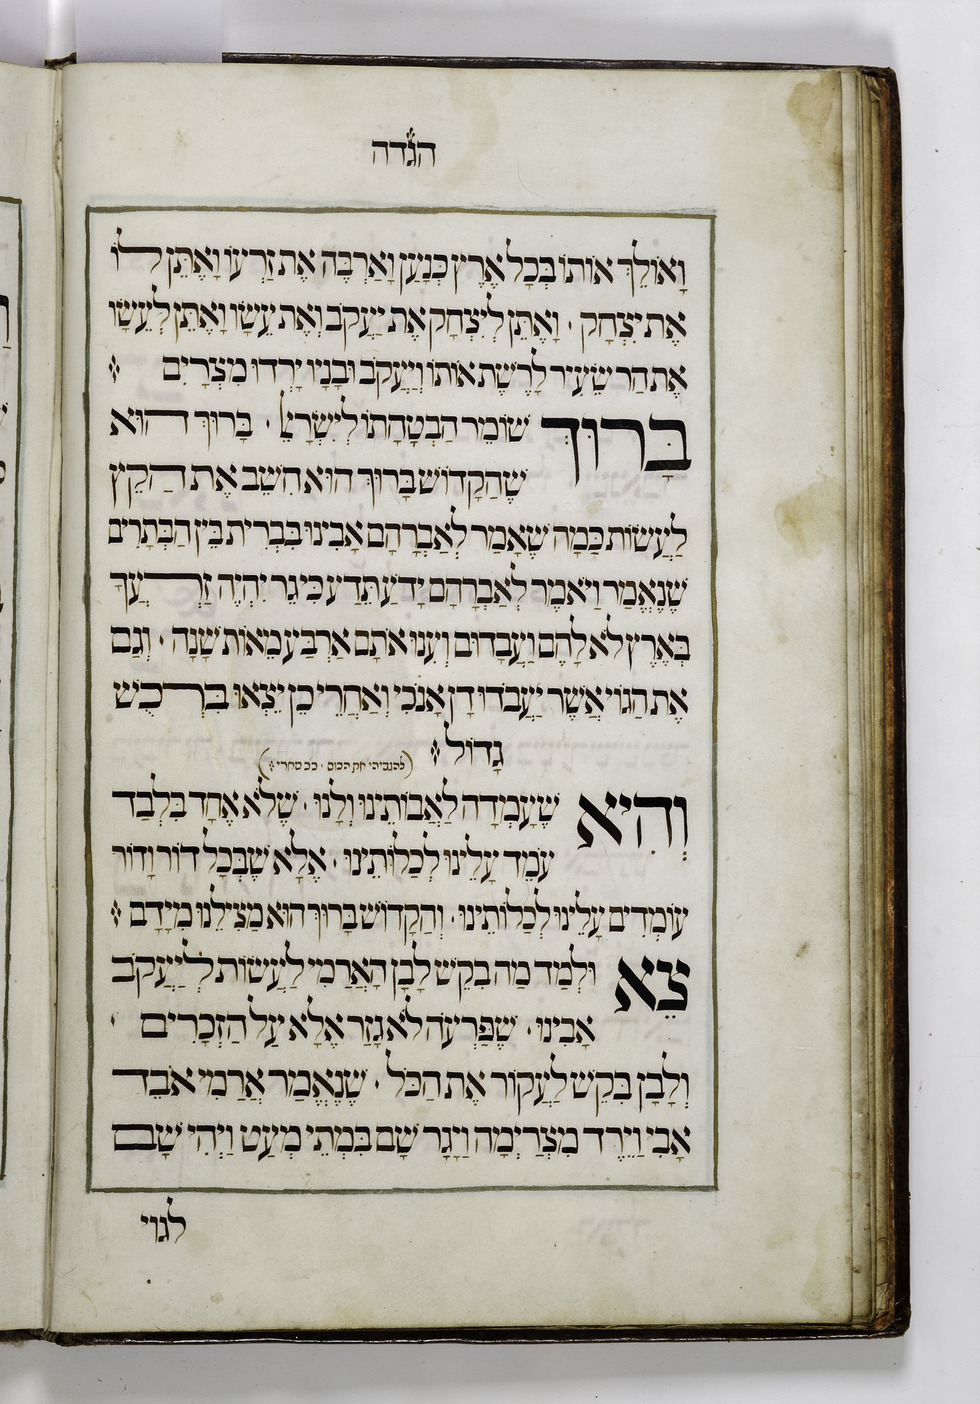 הגדה
וָאוֹלֵךְ אוֹתוֹ בְּכָל אֶרֶץ כְּנָעַן וָאַרְבֶּה אֶת זַרְעוֹ וָאֶתֵּן לוֹ
אֶת יִצְחָק · וָאֶתֵּן לְיִצְחָק אֶת יַעֲקֹב וְאֶת עֵשָׂו וָאֶתֵּן לְעֵשָׂו
אֶת הַר שֵׂעִיר לָרֶשֶׁת אוֹתוֹ וְיַעֲקֹב וּבָנָיו יָרְדוּ מִצְרָיִם
בָּרוּךְ שׁוֹמֵר הַבְטָחָתוֹ לְיִשְׂרָאֵל · בָּרוּךְ הוּא
שֶׁהַקָּדוֹשׁ בָּרוּךְ הוּא חִשֵּׁב אֶת הַקֵּץ
לַעֲשׂוֹת כַּמָּה שֶׁאָמַר לְאַבְרָהָם אָבִינוּ בִּבְרִית בֵּין הַבְּתָרִים
שֶׁנֶּאֱמַר וַיֹּאמֶר לְאַבְרָהָם יָדֹעַ תֵּדַע כִּי גֵר יִהְיֶה זַרְעֲךָ
בְּאֶרֶץ לֹא לָהֶם וַעֲבָדוּם וְעִנּוּ אֹתָם אַרְבַּע מֵאוֹת שָׁנָה · וְגַם
אֶת הַגּוֹי אֲשֶׁר יַעֲבֹדוּ דָן אָנֹכִי וְאַחֲרֵי כֵן יֵצְאוּ בִּרְכֻשׁ
גָּדוֹל
(להגביהי את הכוס · כ״כ סהרי)
וְהִיא שֶׁעָמְדָה לַאֲבוֹתֵינוּ וְלָנוּ · שֶׁלֹּא אֶחָד בִּלְבַד
עֹמֵד עָלֵינוּ לְכַלּוֹתֵינוּ · אֶלָּא שֶׁבְּכָל דּוֹר וָדוֹר
עוֹמְדִים עָלֵינוּ לְכַלּוֹתֵינוּ · וְהַקָּדוֹשׁ בָּרוּךְ הוּא מַצִּילֵנוּ מִיָּדָם
צֵא וּלְמַד מַה בִּקֵּשׁ לָבָן הָאֲרַמִּי לַעֲשׂוֹת לְיַעֲקֹב
אָבִינוּ · שֶׁפַּרְעֹה לֹא גָזַר אֶלָּא עַל הַזְּכָרִים ·
וְלָבָן בִּקֵּשׁ לַעֲקוֹר אֶת הַכֹּל · שֶׁנֶּאֱמַר אֲרַמִּי אֹבֵד
אָבִי וַיֵּרֶד מִצְרַיְמָה וַיָּגָר שָׁם בִּמְתֵי מְעָט וַיְהִי שָׁם
לגוי